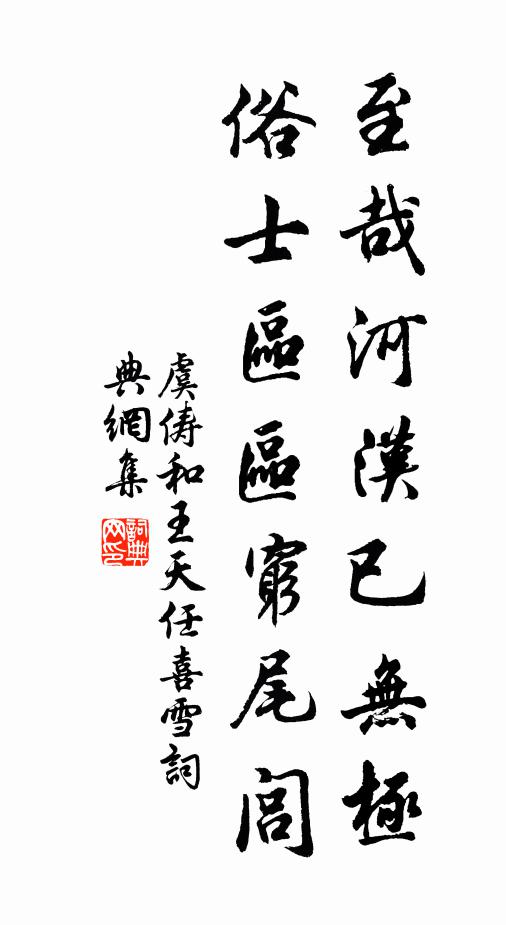 至哉河漢已無極
俗士區區窮尾閭
虞俦和王天任喜雪詞
典網集
詞典網印